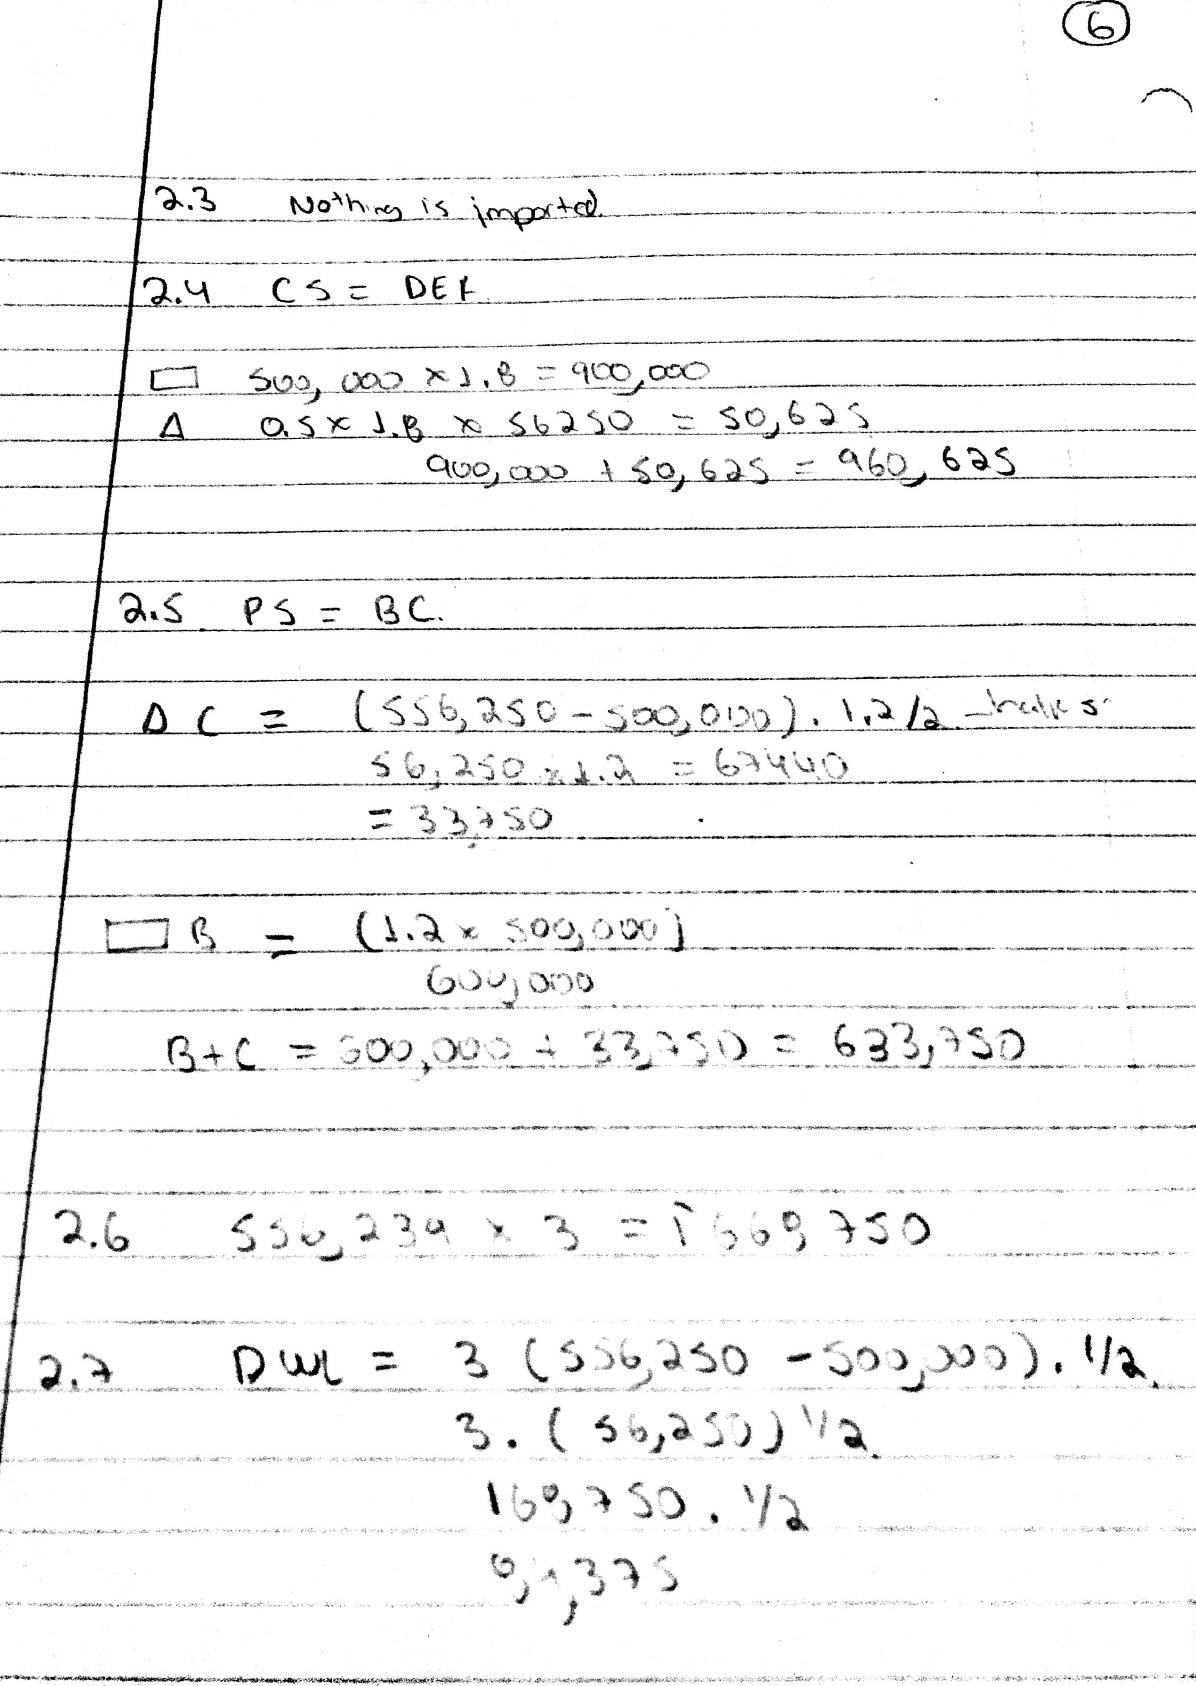 6
2.3 Nothing is imported.
2.4 CS = DEF
▭ 500,000 x 1.8 = 900,000
Δ 0.5 x 1.8 x 56250 = 50,625
900,000 + 50,625 = 960,625
2.5. PS = BC.
Δ C = (556,250 - 500,000). 1.2/2
56,250 x 1.2 = 67440
= 33,750
▭ B = (1.2 x 500,000)
600,000
B+C = 600,000 + 33,750 = 633,750
2.6 556,239 x 3 = 1 668,750
2.7 DWL = 3 (556,250 - 500,000). 1/2.
3. (56,250) 1/2.
168,750. 1/2